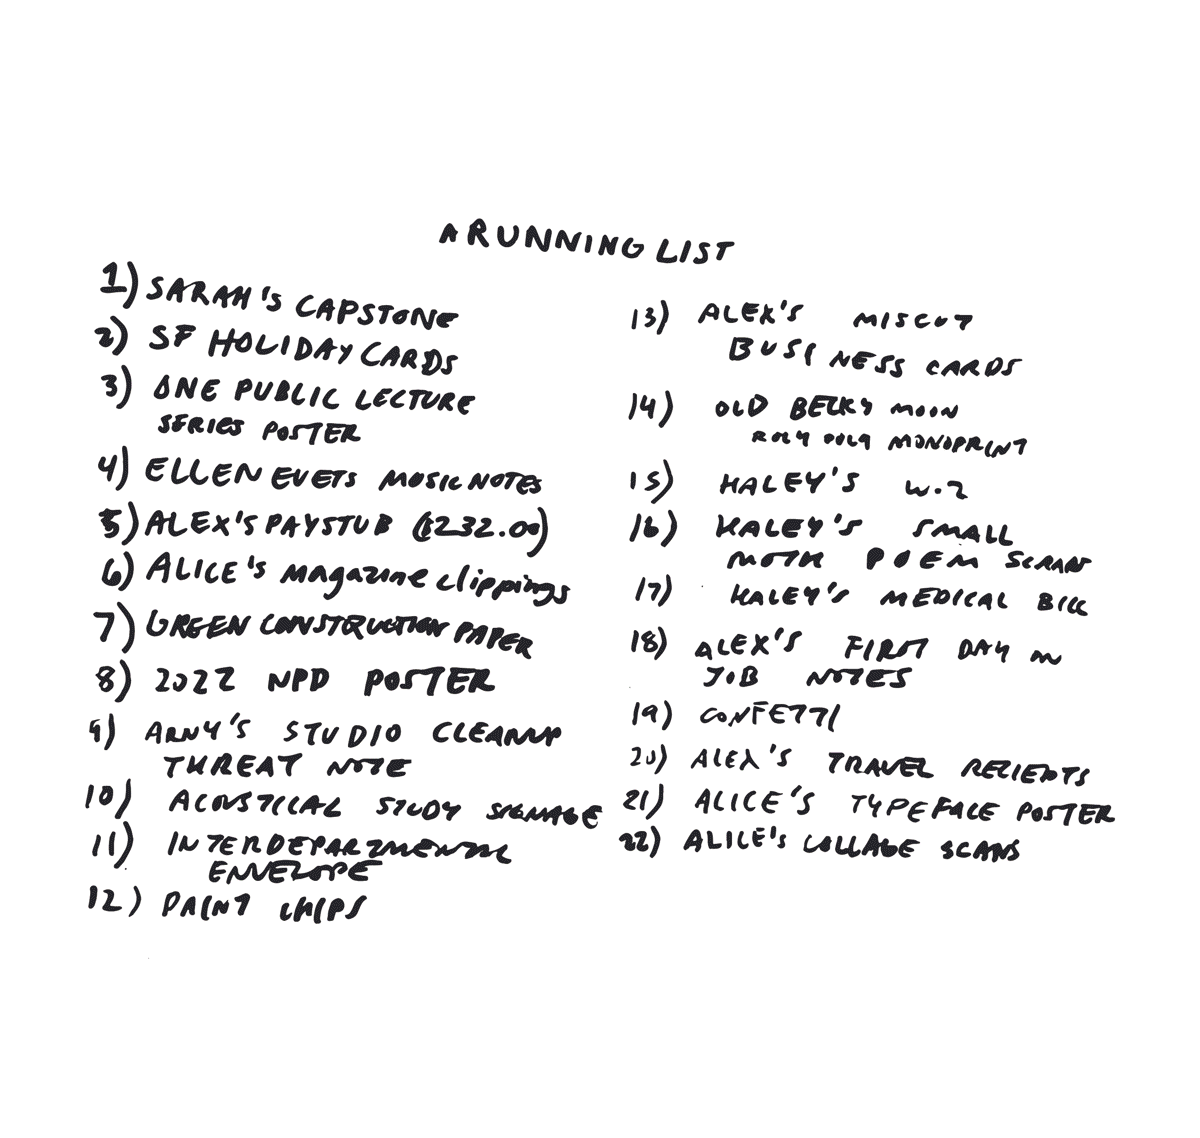 A RUNNING LIST
1) SARAH'S CAPSTONE
2) SF HOLIDAY CARDS
3) ONE PUBLIC LECTURE
SERIES POSTER
4) ELLEN EVETS MUSIC NOTES
5) ALEX'S PAYSTUB ($232.00)
6) ALICE'S magazine clippings
7) GREEN CONSTRUCTION PAPER
8) 2022 NPD POSTER
9) ARNY'S STUDIO CLEANUP
THREAT NOTE
10) ACOUSTICAL STUDY SIGNAGE
11) INTERDEPARTMENTAL
ENVELOPE
12) PAINT CHIPS
13) ALEX'S MISCUT
BUSINESS CARDS
14) OLD BECKY MOON
ROLY POLY MONOPRINT
15) HALEY'S W-2
16) HALEY'S SMALL
MOTH POEM
17) HALEY'S MEDICAL BILL
18) ALEX'S FIRST DAY ON
JOB NOTES
19) CONFETTI
20) ALEX'S TRAVEL RECIEPTS
21) ALICE'S TYPEFACE POSTER
22) ALICE'S COLLAGE SCANS